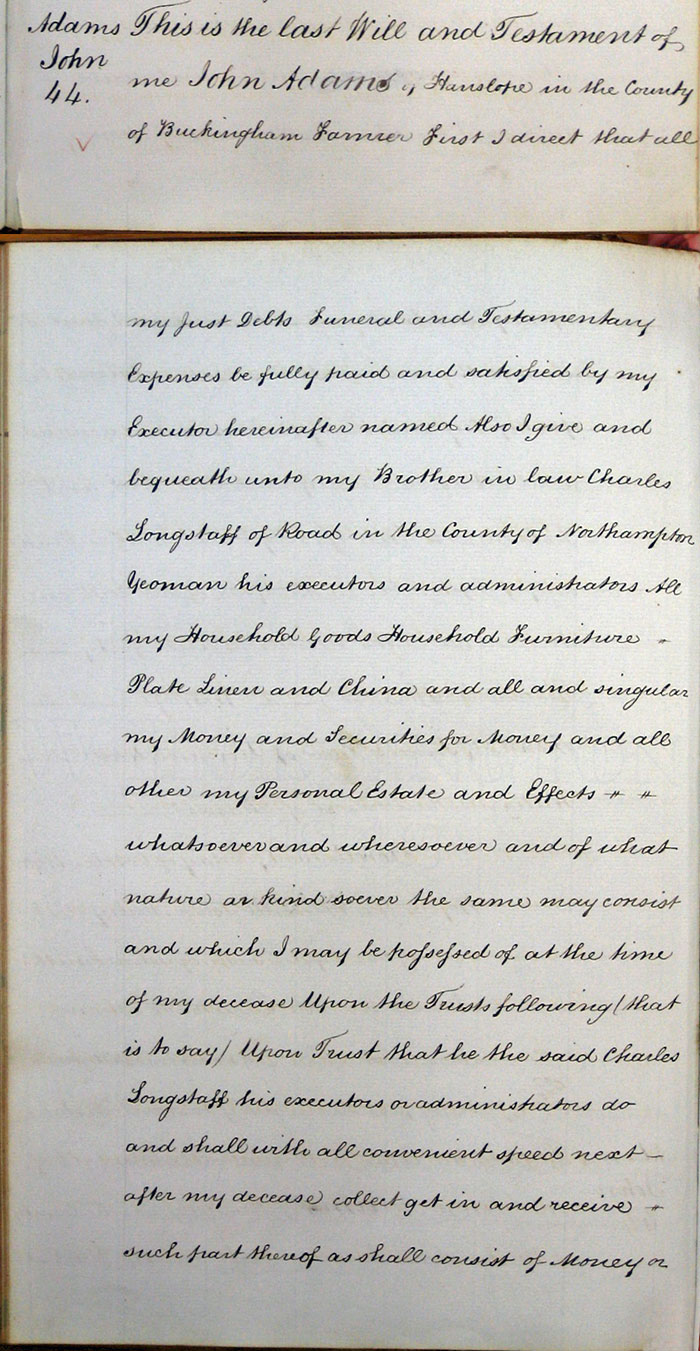 Adams
John
44.
This is the last Will and Testament of
me John Adams of Hanslope in the County
of Buckingham Farmer First I direct that all
my just Debts Funeral and Testamentary
Expenses be fully paid and satisfied by my
Executor hereinafter named Also I give and
bequeath unto my Brother in law Charles
Longstaff of Road in the County of Northampton
Yeoman his executors and administrators All
my Household Goods Household Furniture
Plate Linen and China and all and singular
my Money and Securities for Money and all
other my Personal Estate and Effects
whatsoever and wheresoever and of what
nature or kind soever the same may consist
and which I may be possessed of at the time
of my decease Upon the Trusts following (that
is to say) Upon Trust that he the said Charles
Longstaff his executors or administrators do
and shall with all convenient speed next
after my decease collect get in and receive
such part thereof as shall consist of Money or